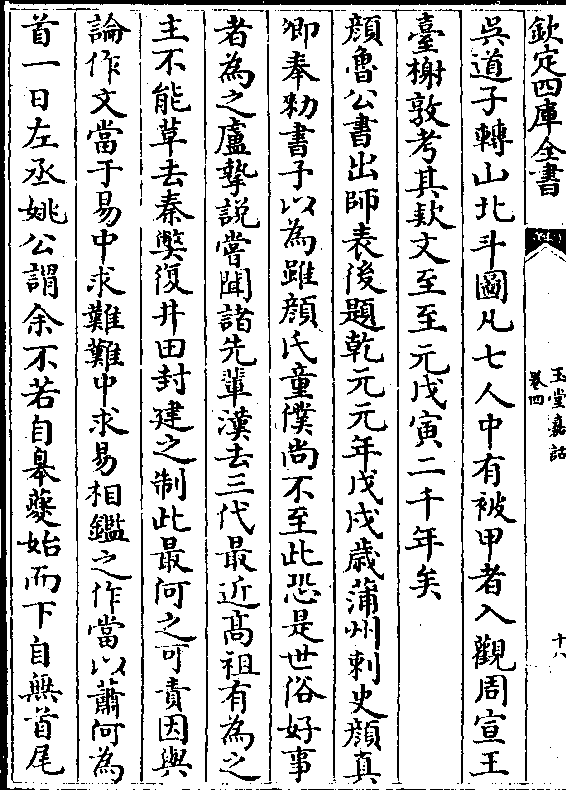 欽定四庫全書
玉堂嘉話
卷四
十六
吳道子轉山北斗圖凡七人中有被甲者入觀周宣王
臺榭敦考其欵文至至元戊寅二千年矣
顔魯公書出師表後題乾元元年戊戌歳蒲州刺史顔真
卿奉勑書予以為雖顔氏童僕尚不至此恐是世俗好事
者為之盧摯説嘗聞諸先輩漢去三代最近髙祖有為之
主不能草去秦弊復井田封建之制此最何之可責因與
論作文當于易中求難難中求易相鑑之作當以蕭何為
首一日左丞姚公謂余不若自皋夔始而下自無首尾